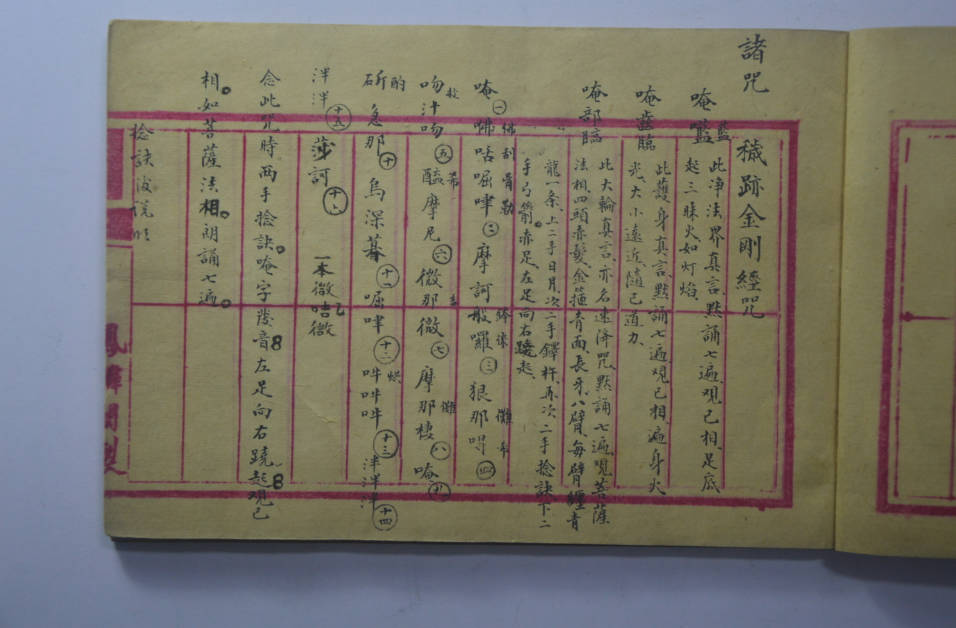 諸咒
穢跡金剛經咒
唵㘕 藍 此净法界真言、默誦七遍、观己相、足底
起三昧火如灯焰、
唵齒臨 此護身真言、默誦七遍观己相、遍身火
光、大小遠近隨己道力、
唵部臨 此大輪真言、亦名速济咒、默誦七遍、观菩薩
法相、四頭赤髮金箍、青面長牙、八臂、每臂纏青
龍一条、上二手日月、次二手鐸杵、再次二手捻訣、下二
手弓箭。赤足、左足向右蹺起、
唵㊀ 咈咶啒㖀㊁ 摩訶般囉㊂ 狠那㖇㊃
吻汁吻㊄ 醯摩尼㊅ 微那微㊆ 摩那棲㊇ 唵㊈
斫急那㊉ 烏深暮 十一 啒㖀 十二 𤙖𤙖𤙖 十三 泮泮泮 十四
泮泮 十五 莎訶 十六 一本微咭微
念此咒時两手捻訣。唵字發音左足向右蹺起观己
相。如菩薩法相。朗誦七遍。
捻訣後説明